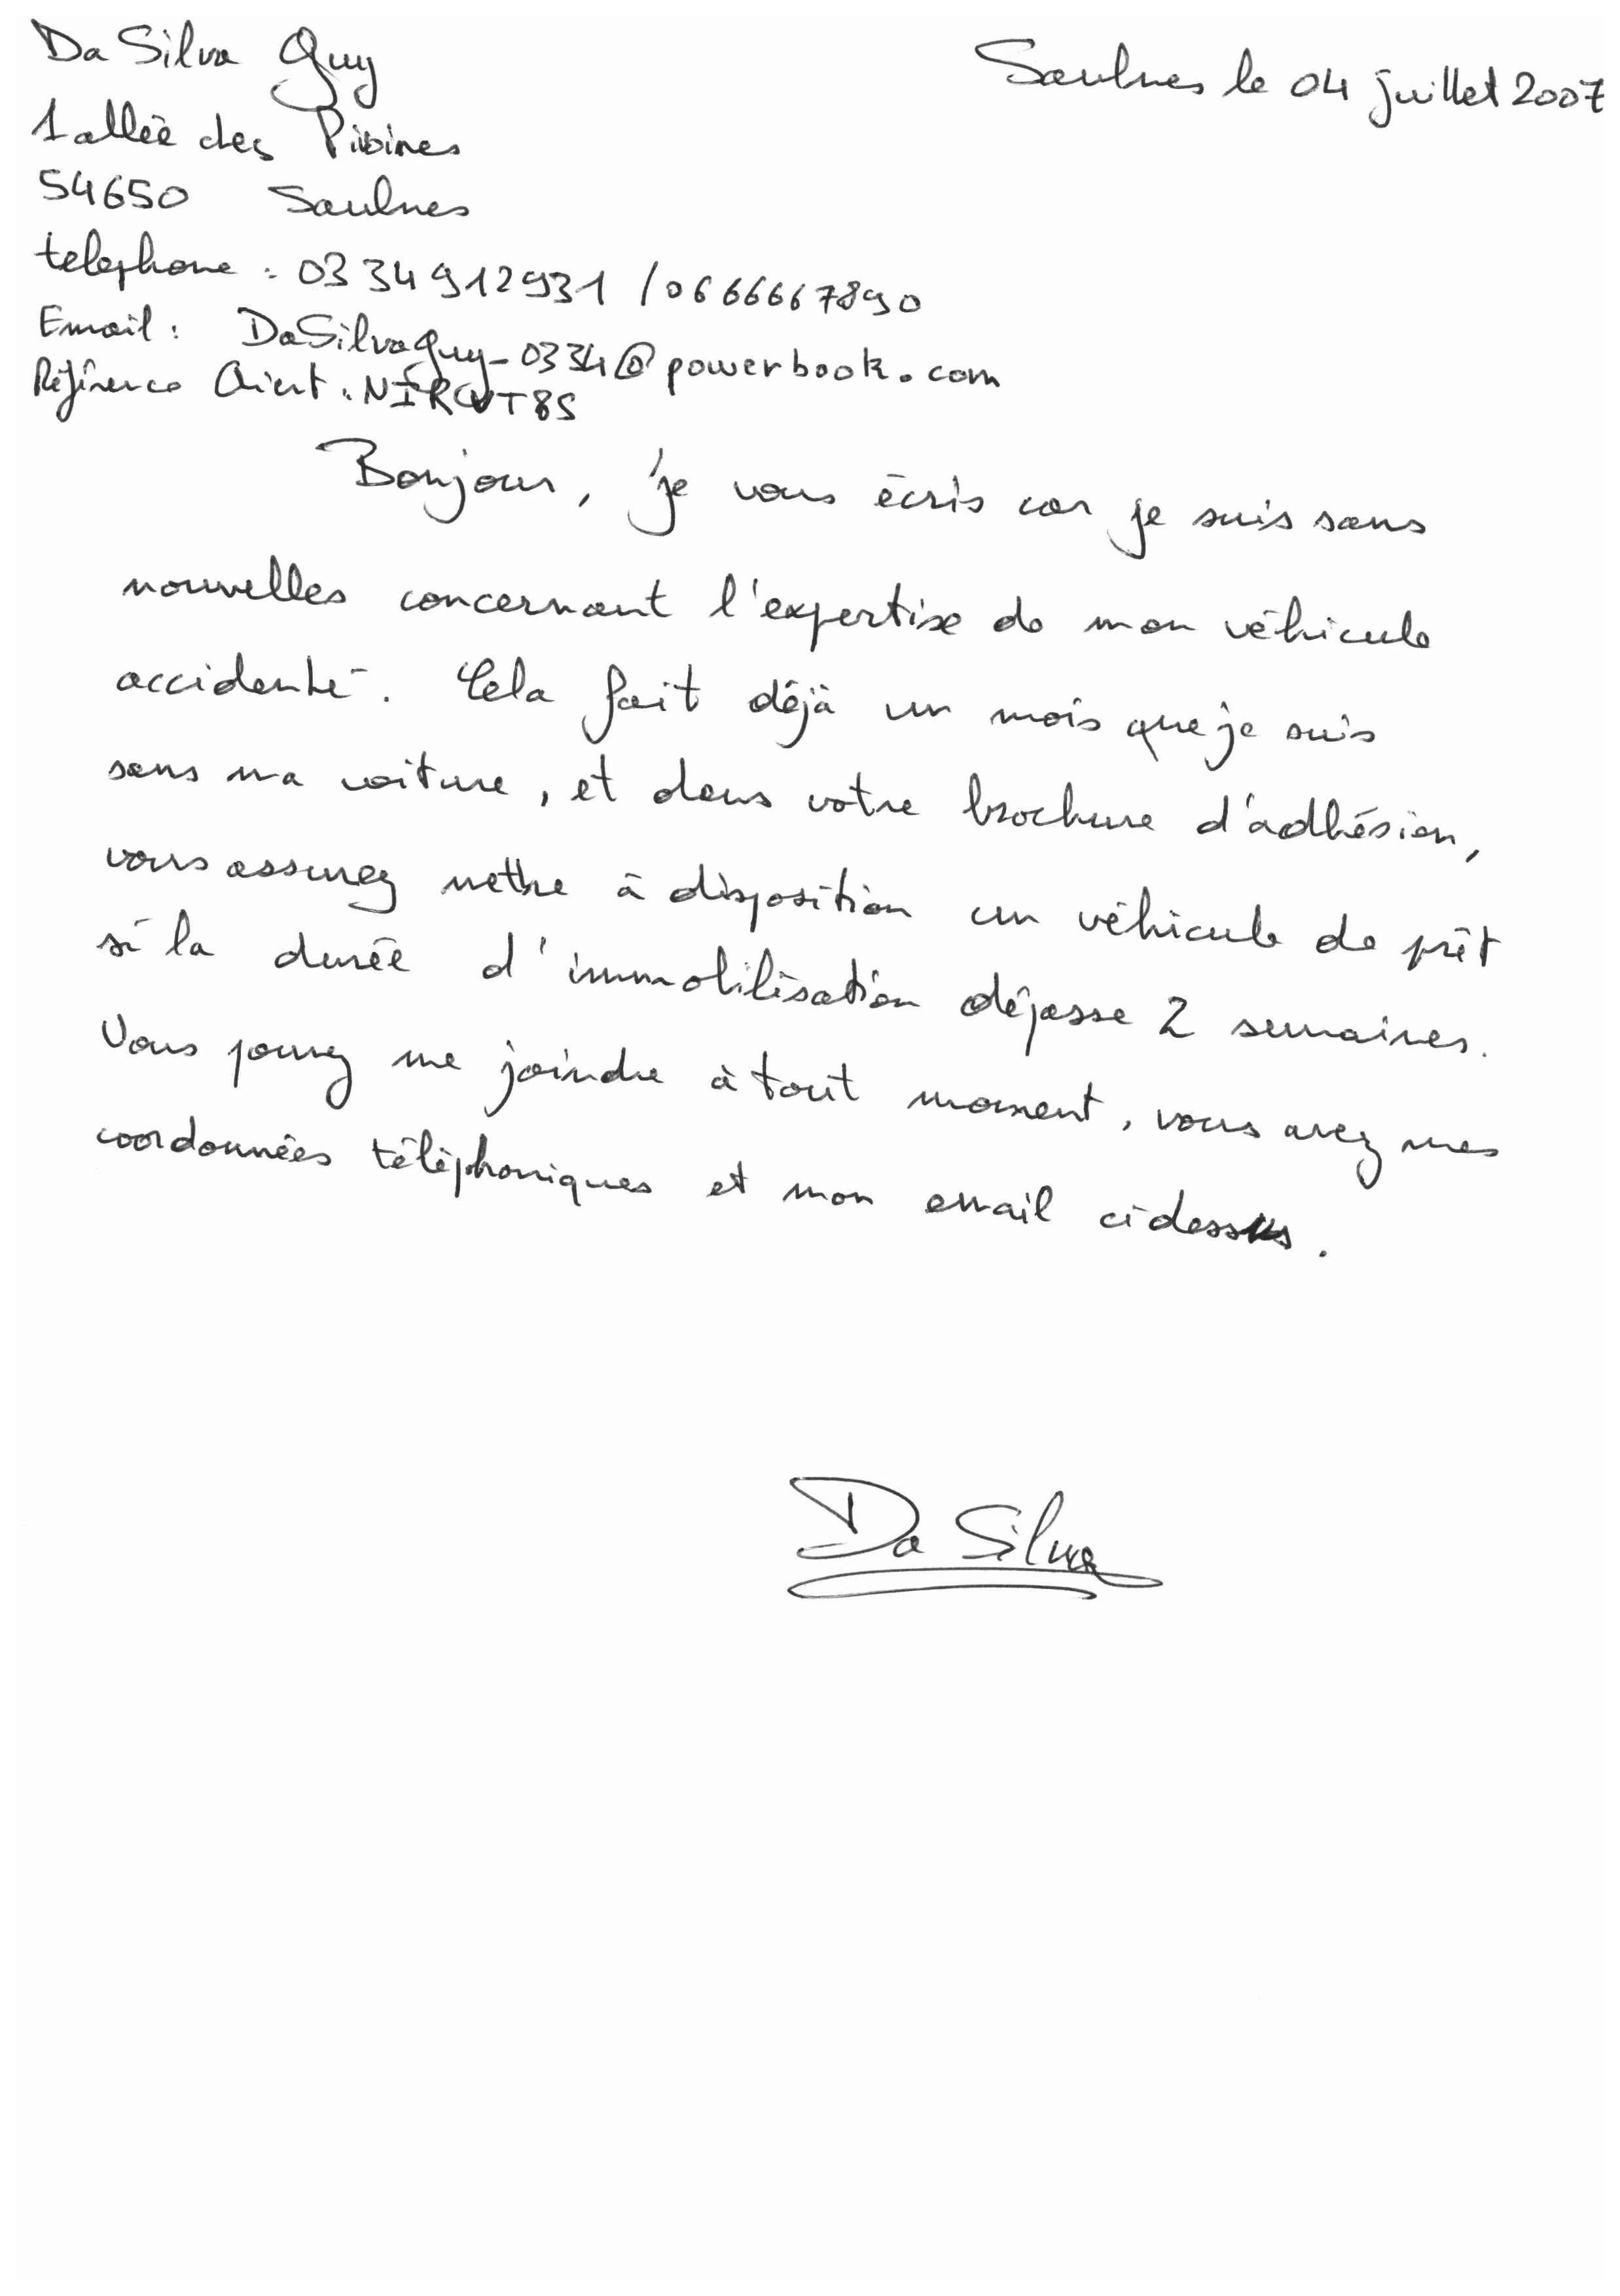 Da Silva Guy
Saulnes le 04 juillet 2007
1 allée des
54650 Saulnes
telephone : 0334912931 / 0666667890
Email : DaSilvaguy-0334@powerbook.com
Référence Client :
Bonjour, je vous écris car je suis sans
nouvelles concernant l'expertise de mon véhicule
accidenté. Cela fait déjà un mois que je suis
sans ma voiture, et dans votre brochure d'adhésion,
vous assurez mettre à disposition un véhicule de prêt
si la durée d'immobilisation dépasse 2 semaines.
Vous pouvez me joindre à tout moment, vous avez mes
coordonnées téléphoniques et mon email ci dessus.
Da Silva